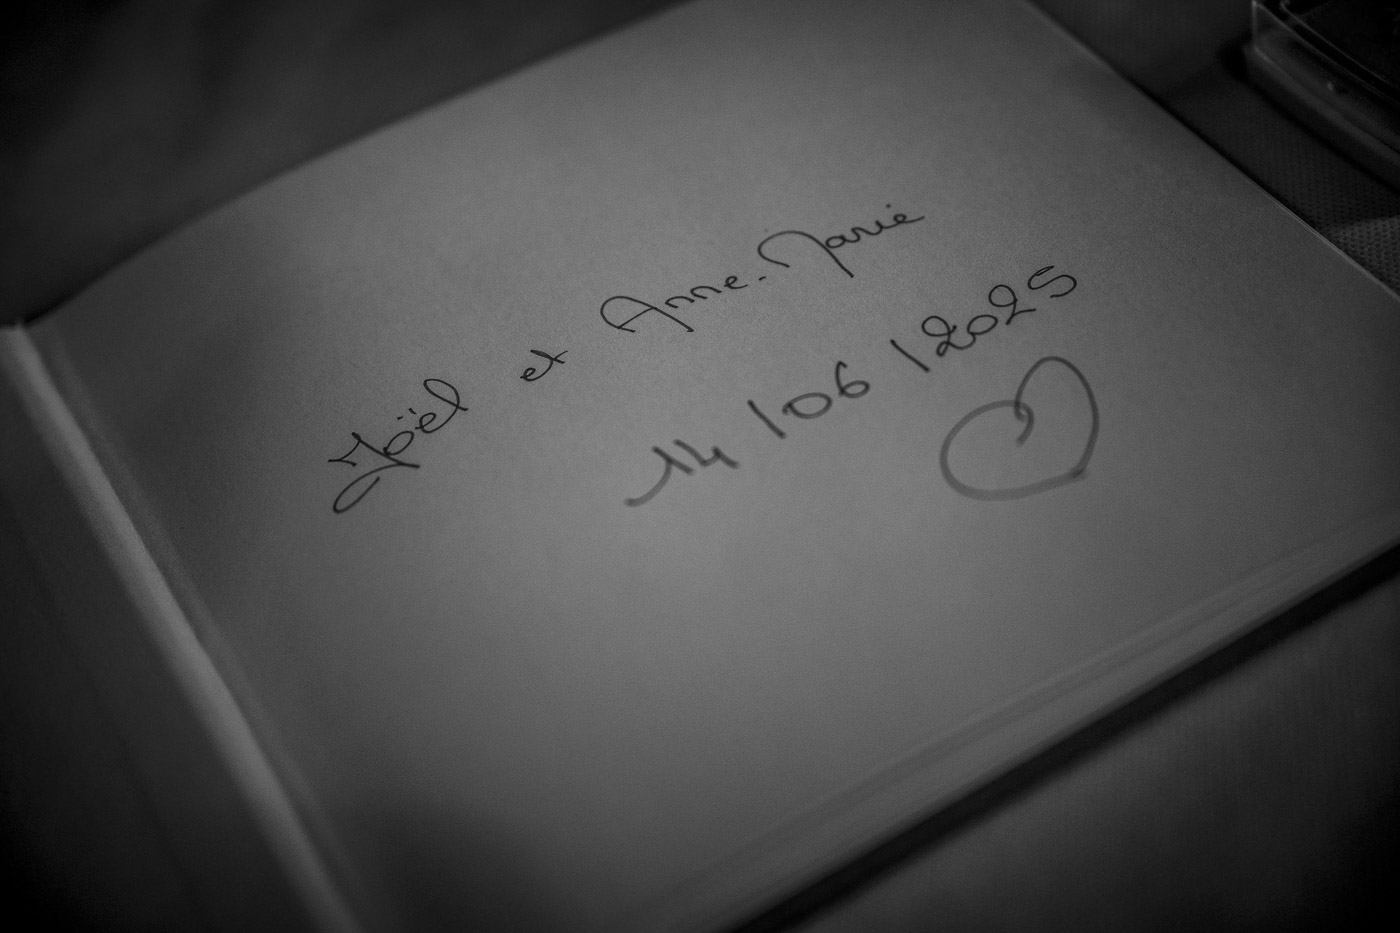 Joël et Anne-Marie
14/06/2025